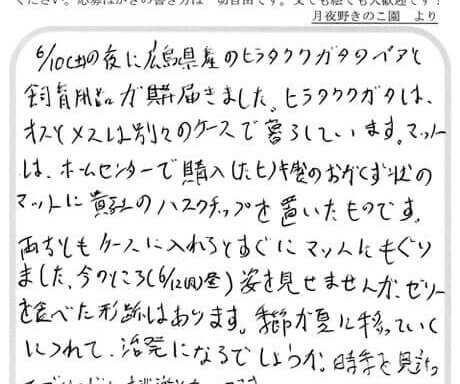 ください。応募はがきの書き方は一切自由です。文でも絵でも大歓迎です！
月夜野きのこ園　より
6/10(土)の夜に広島県産のヒラタクワガタのペアと
飼育用品が届きました。ヒラタクワガタは、
オスとメスは別々のケースで暮らしています。マット
は、ホームセンターで購入したヒノキ製のおがくず状の
マットに貴社のハスクチップを置いたものです。
両方とも ケースに入れるとすぐにマットにもぐり
ました。今のところ(6/12(月) 姿を見せませんが、ゼリー
を食べた形跡はあります。季節が夏に移っていく
につれて、活発になるでしょうか。時季を見計